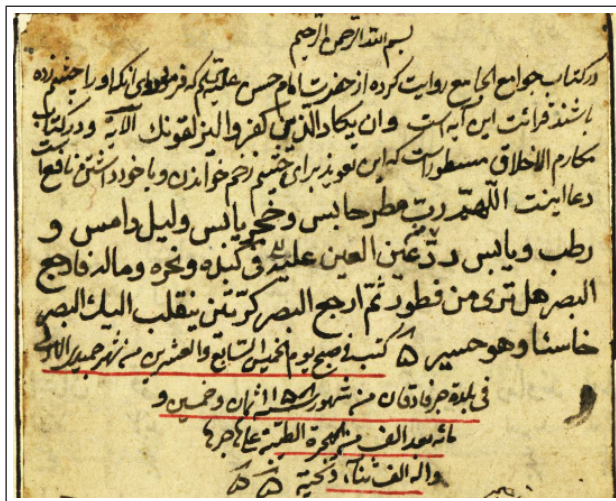 بسم الله الرحمن الرحیم
در کتاب جوامع الجامع روایت کرده از حضرت امام حسن علیه السلم که فرمود دوای آنکه او را چشم زده
باشند قرائت این آیه است وان یکاد الذین کفروا لیزلقونک الآیة و در کتاب
مکارم الاخلاق مسطور است که این تعویذ برای چشم زخم خواندن و با خود داشتن نافع است
دعا اینست اللهم رب مطر حابس وحجر یابس ولیل دامس و
رطب ویابس رد عین العین علیه فی کبده ونحره وماله فارجع
البصر هل تری من فطور ثم ارجع البصر کرتین ینقلب الیک البصر
خاسئا وهو حسیر کتب فی صبح یوم الخمیس السابع والعشرین من شهر جمیدی
فی بلدة جرفادقان من شهور سنه ۱۱۵۸ ثمان وخمسین و
مائه بعد الف من الهجرة الطیبة علی هاجرها
واله الف ثناء وتحیة